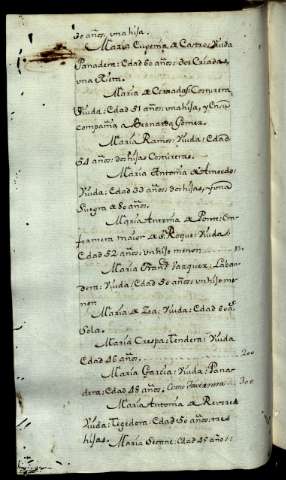 30 años, una hija.
Maria Eugenia de Castro: Viuda
Panadera: Edad 60 años: dos Criadas,
una Nieta.
Maria de Costureta
Viuda: Edad 51 años una hija, y En su
compañia a Bernarda Gomez.
Maria Ramos: Viuda: Edad
54 años: dos hijas Costureras.
Maria Antonia de
Viuda: Edad 33 años dos hijas, y una
Suegra de 80 años.
Maria Antonia de Ponte: En-
fermera maior de Sn. Roque: Viuda:
Edad 52 años: un hijo menor
Maria Vazquez: Laban-
dera: Viuda: Edad 50 años: un hijo me-
nor
Maria de Zea: Viuda: Edad 60 as.
Sola.
Maria Crespa: Tendera: Viuda
Edad 46 años. 200
Maria Garcia: Viuda: Pana-
dera: Edad 48 años. 300
Maria Antonia de
Viuda: Tegedora: Edad 50 años: tres
hijas. Maria Edad 45 años: